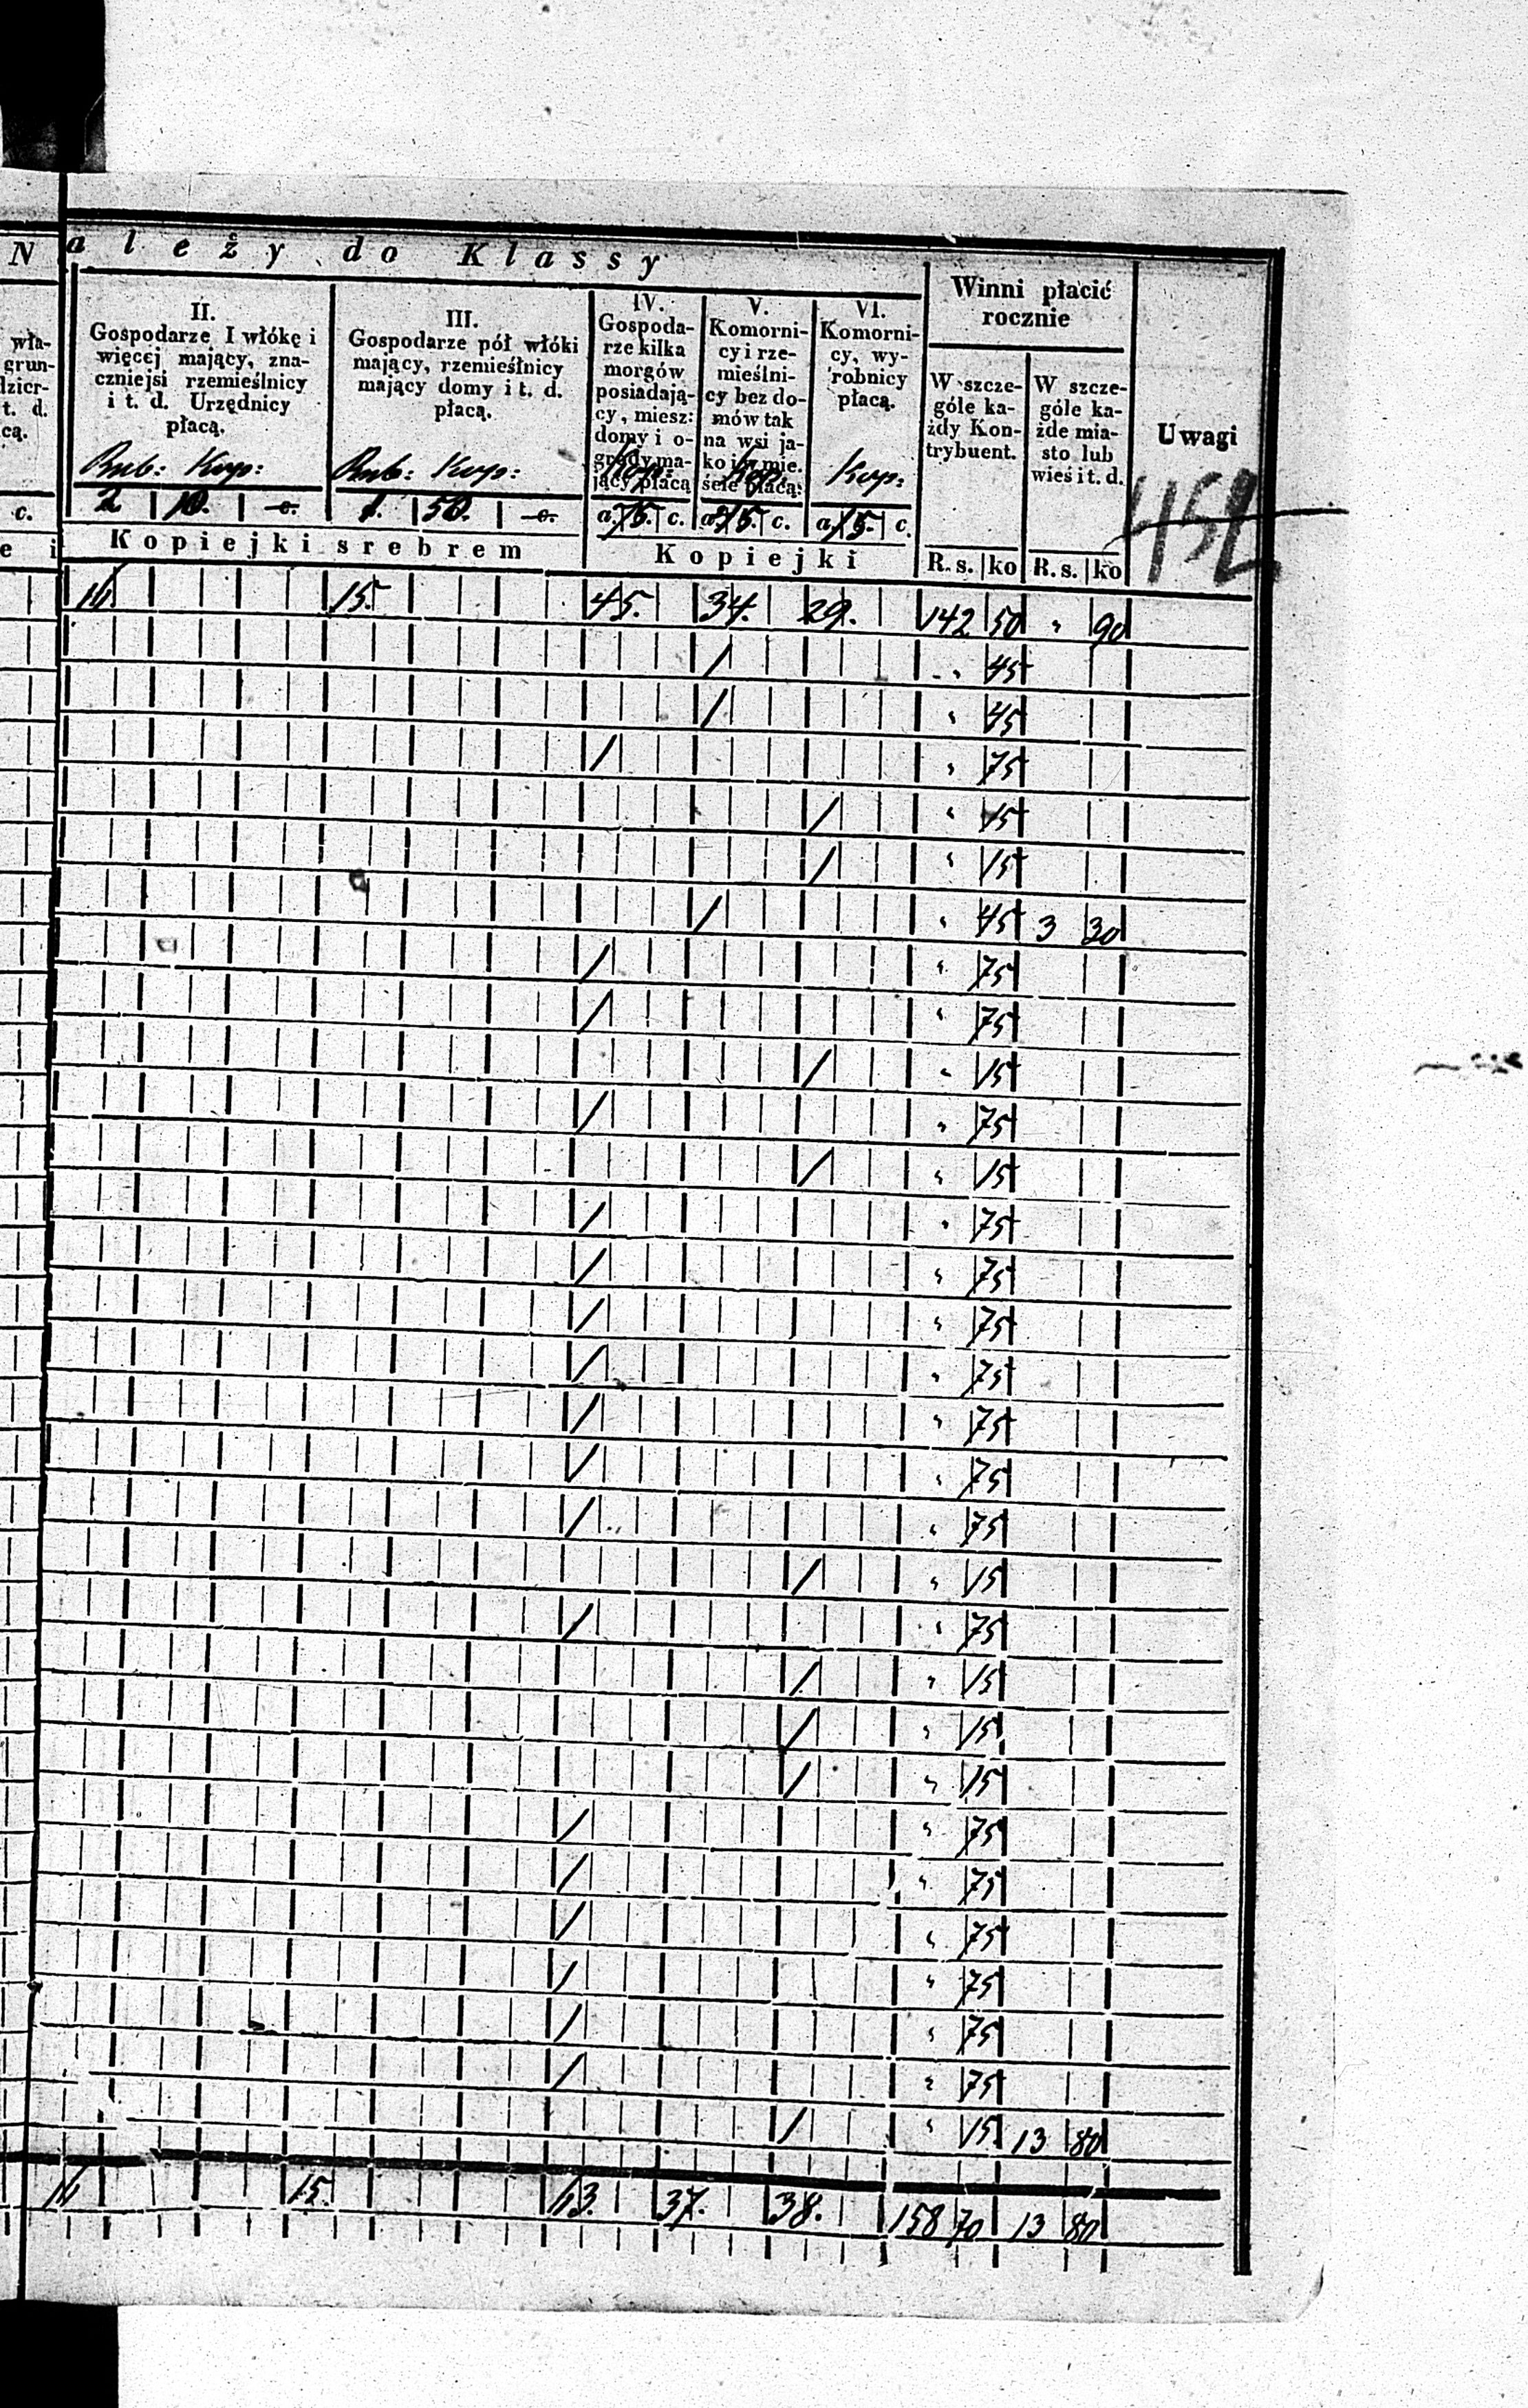 Należy do Klassy
wła-
grun-
dzier-
t. d.
cą.
c.
e i
II.
Gospodarze I włókę i
więcej mający, zna-
czniejsi rzemieślnicy
i t. d. Urzędnicy
płacą.
Rub: Kop:
2 10. c.
III.
Gospodarze pół włóki
mający, rzemieślnicy
mający domy i t. d.
płacą.
Rub: Kop:
1. 50. c.
Kopiejki srebrem
IV.
Gospoda-
rze kilka
morgów
posiadają-
cy, miesz:
domy i o-
grody ma-
jący płacą
Kop:
a. 75. c.
V.
Komorni-
cy i rze-
mieślni-
cy bez do-
mów tak
na wsi ja-
ko i w mie.
ście płacą:
Kop:
a. 45. c.
VI.
Komorni-
cy, wy-
robnicy
płacą.
Kop:
a. 15. c.
Kopiejki
Winni płacić
rocznie
W szcze-
góle ka-
żdy Kon-
trybuent.
R. s. ko
W szcze-
góle ka-
żde mia-
sto lub
wieś i t. d.
R. s. ko
Uwagi
15. 45. 34. 29. 142 50 " 90
/ " 45
/ " 45
/ " 75
/ " 15
/ " 15
/ " 45 3 30
/ " 75
/ " 75
/ " 15
/ " 75
/ " 15
/ " 75
/ " 75
/ " 75
/ " 75
/ " 75
/ " 75
/ " 75
/ " 15
/ " 75
/ " 15
/ " 15
/ " 15
/ " 75
/ " 75
/ " 75
/ " 75
/ " 75
/ " 75
/ " 15 13 80
15. 37. 38. 158 70 13 80